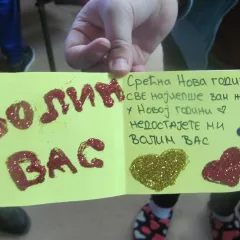 ВОЛИМ
ВАС
СРЕЋНА НОВА ГОДИ
СВЕ НАЈЛЕПШЕ ВАМ
У НОВОЈ ГОДИНИ
НЕДОСТАЈЕТЕ МИ
ВОЛИМ ВАС